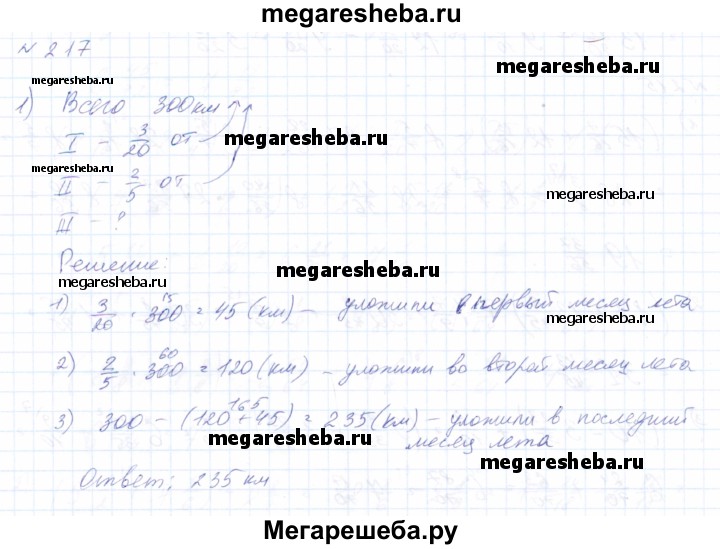 megaresheba.ru
№ 217
megaresheba.ru
megaresheba.ru
1) Всего 300 км
I - 3/20 от
megaresheba.ru
megaresheba.ru
II - 2/5 от
megaresheba.ru
III - ?
Решение:
megaresheba.ru
megaresheba.ru
15
1) 3/20 · 300 = 45 (км) - уложили в первый месяц лета
megaresheba.ru
60
2) 2/5 · 300 = 120 (км) - уложили во второй месяц лета
165
3) 300 - (120 + 45) = 235 (км) - уложили в последний
месяц лета
megaresheba.ru
megaresheba.ru
Ответ: 235 км
Мегарешеба.ру